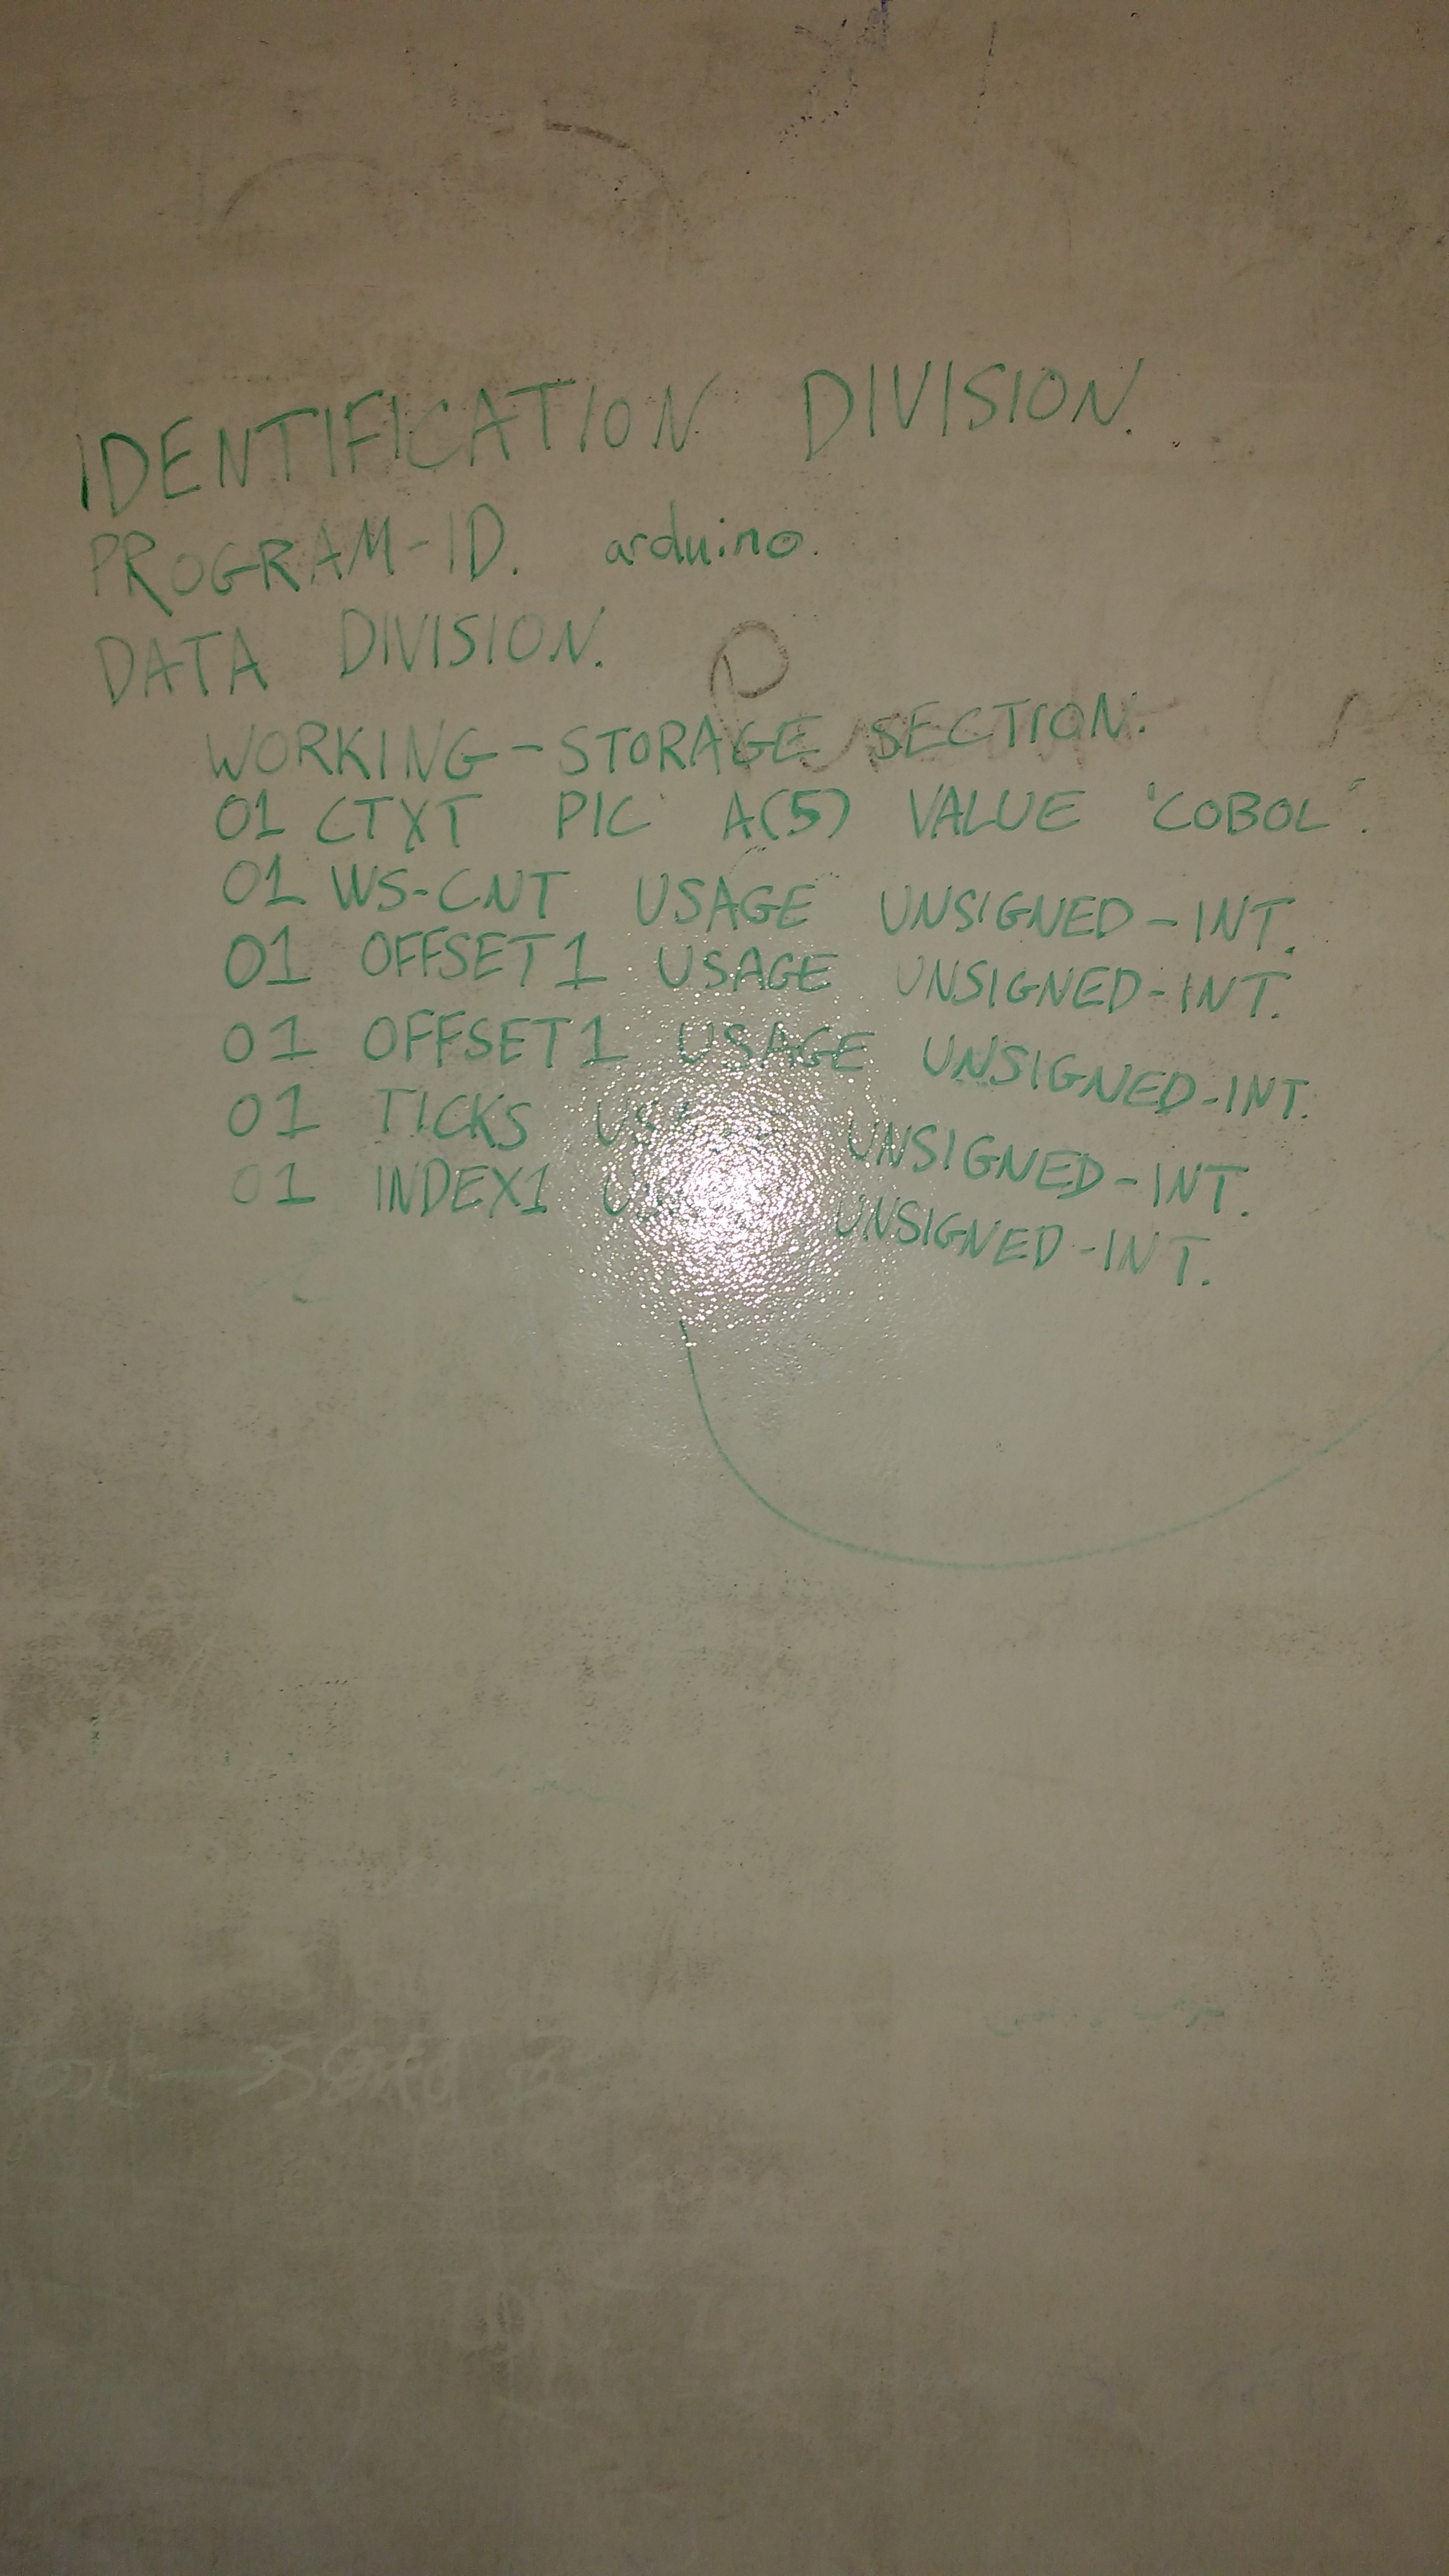 IDENTIFICATION DIVISION.
PROGRAM-ID. arduino.
DATA DIVISION.
WORKING-STORAGE SECTION.
01 CTXT PIC A(5) VALUE 'COBOL'.
01 WS-CNT USAGE UNSIGNED-INT.
01 OFFSET1 USAGE UNSIGNED-INT.
01 OFFSET1 USAGE UNSIGNED-INT.
01 TICKS USAGE UNSIGNED-INT.
01 INDEX1 UNSIGNED-INT.